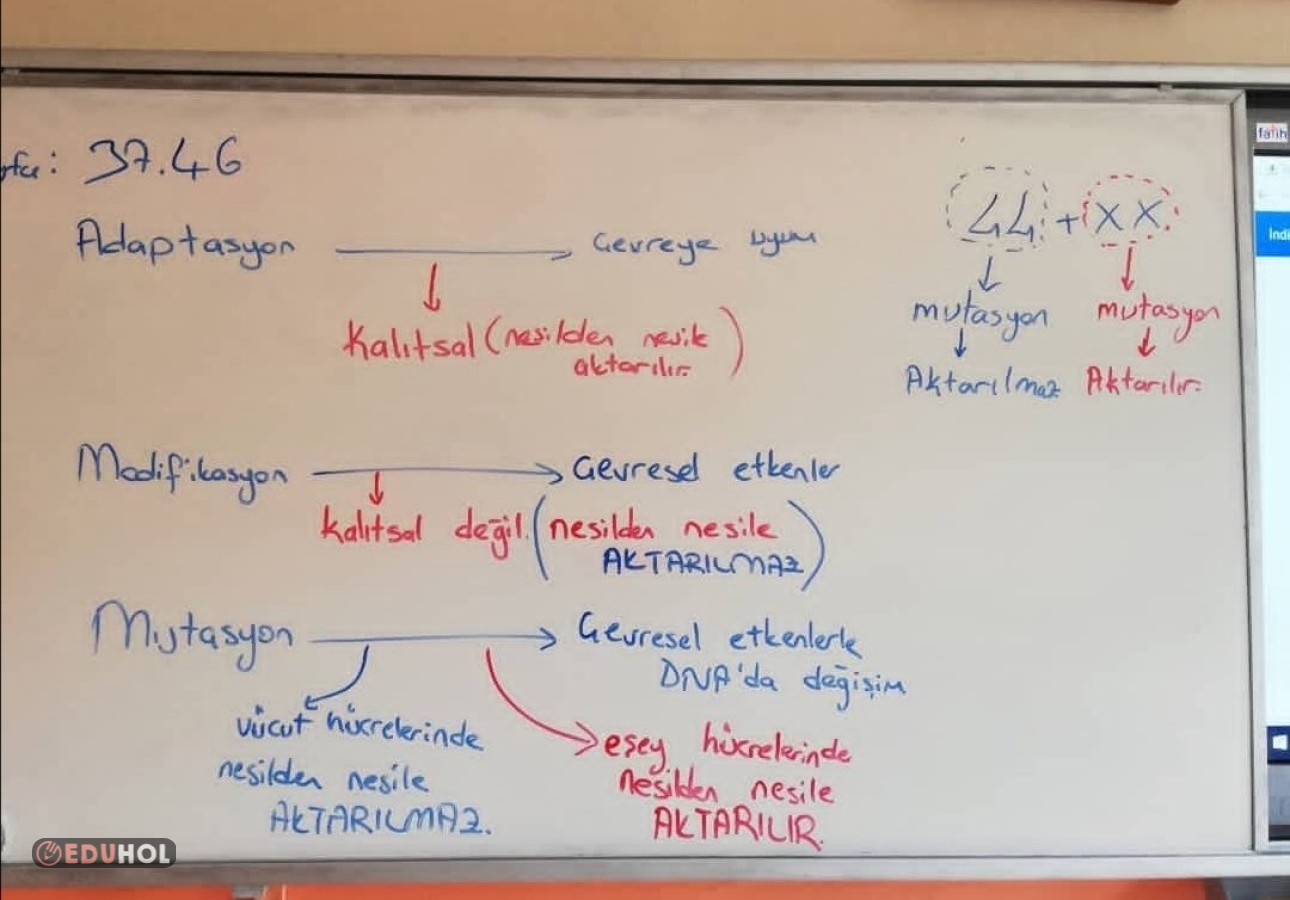 37.46
Adaptasyon
Çevreye uyum
Kalıtsal (nesilden nesile
aktarılır.)
44 + XX
mutasyon
mutasyon
Aktarılmaz
Aktarılır.
Modifikasyon
Çevresel etkenler
Kalıtsal değil. (nesilden nesile
AKTARILMAZ)
Mutasyon
Çevresel etkenlerle
DNA'da değişim
vücut hücrelerinde
nesilden nesile
AKTARILMAZ.
eşey hücrelerinde
nesilden nesile
AKTARILIR.
fatih
EDUHOL